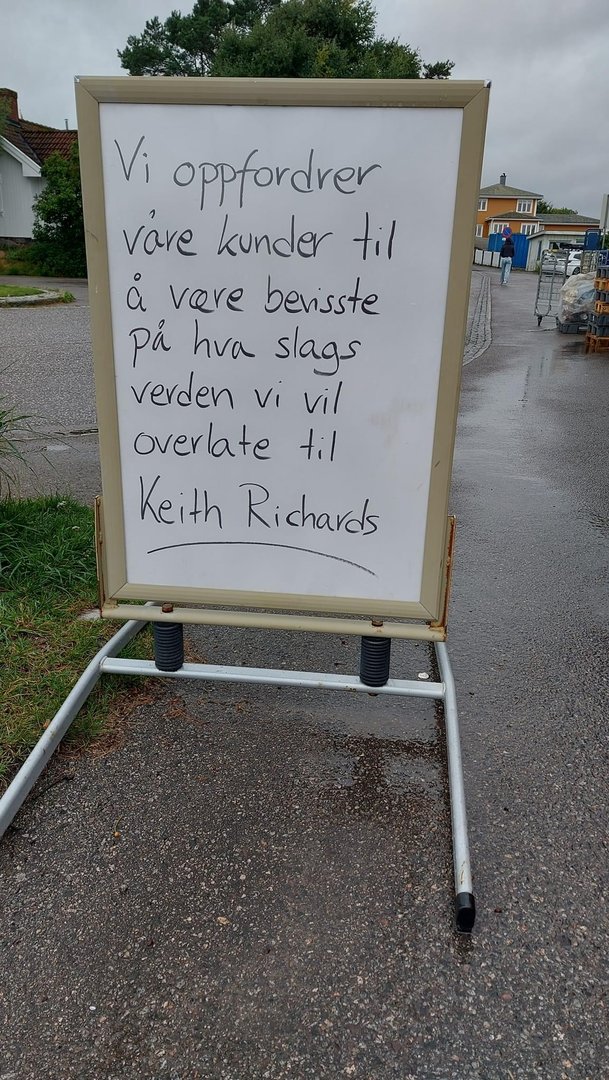 Vi oppfordrer
våre kunder til
å være bevisste
på hva slags
verden vi vil
overlate til
Keith Richards